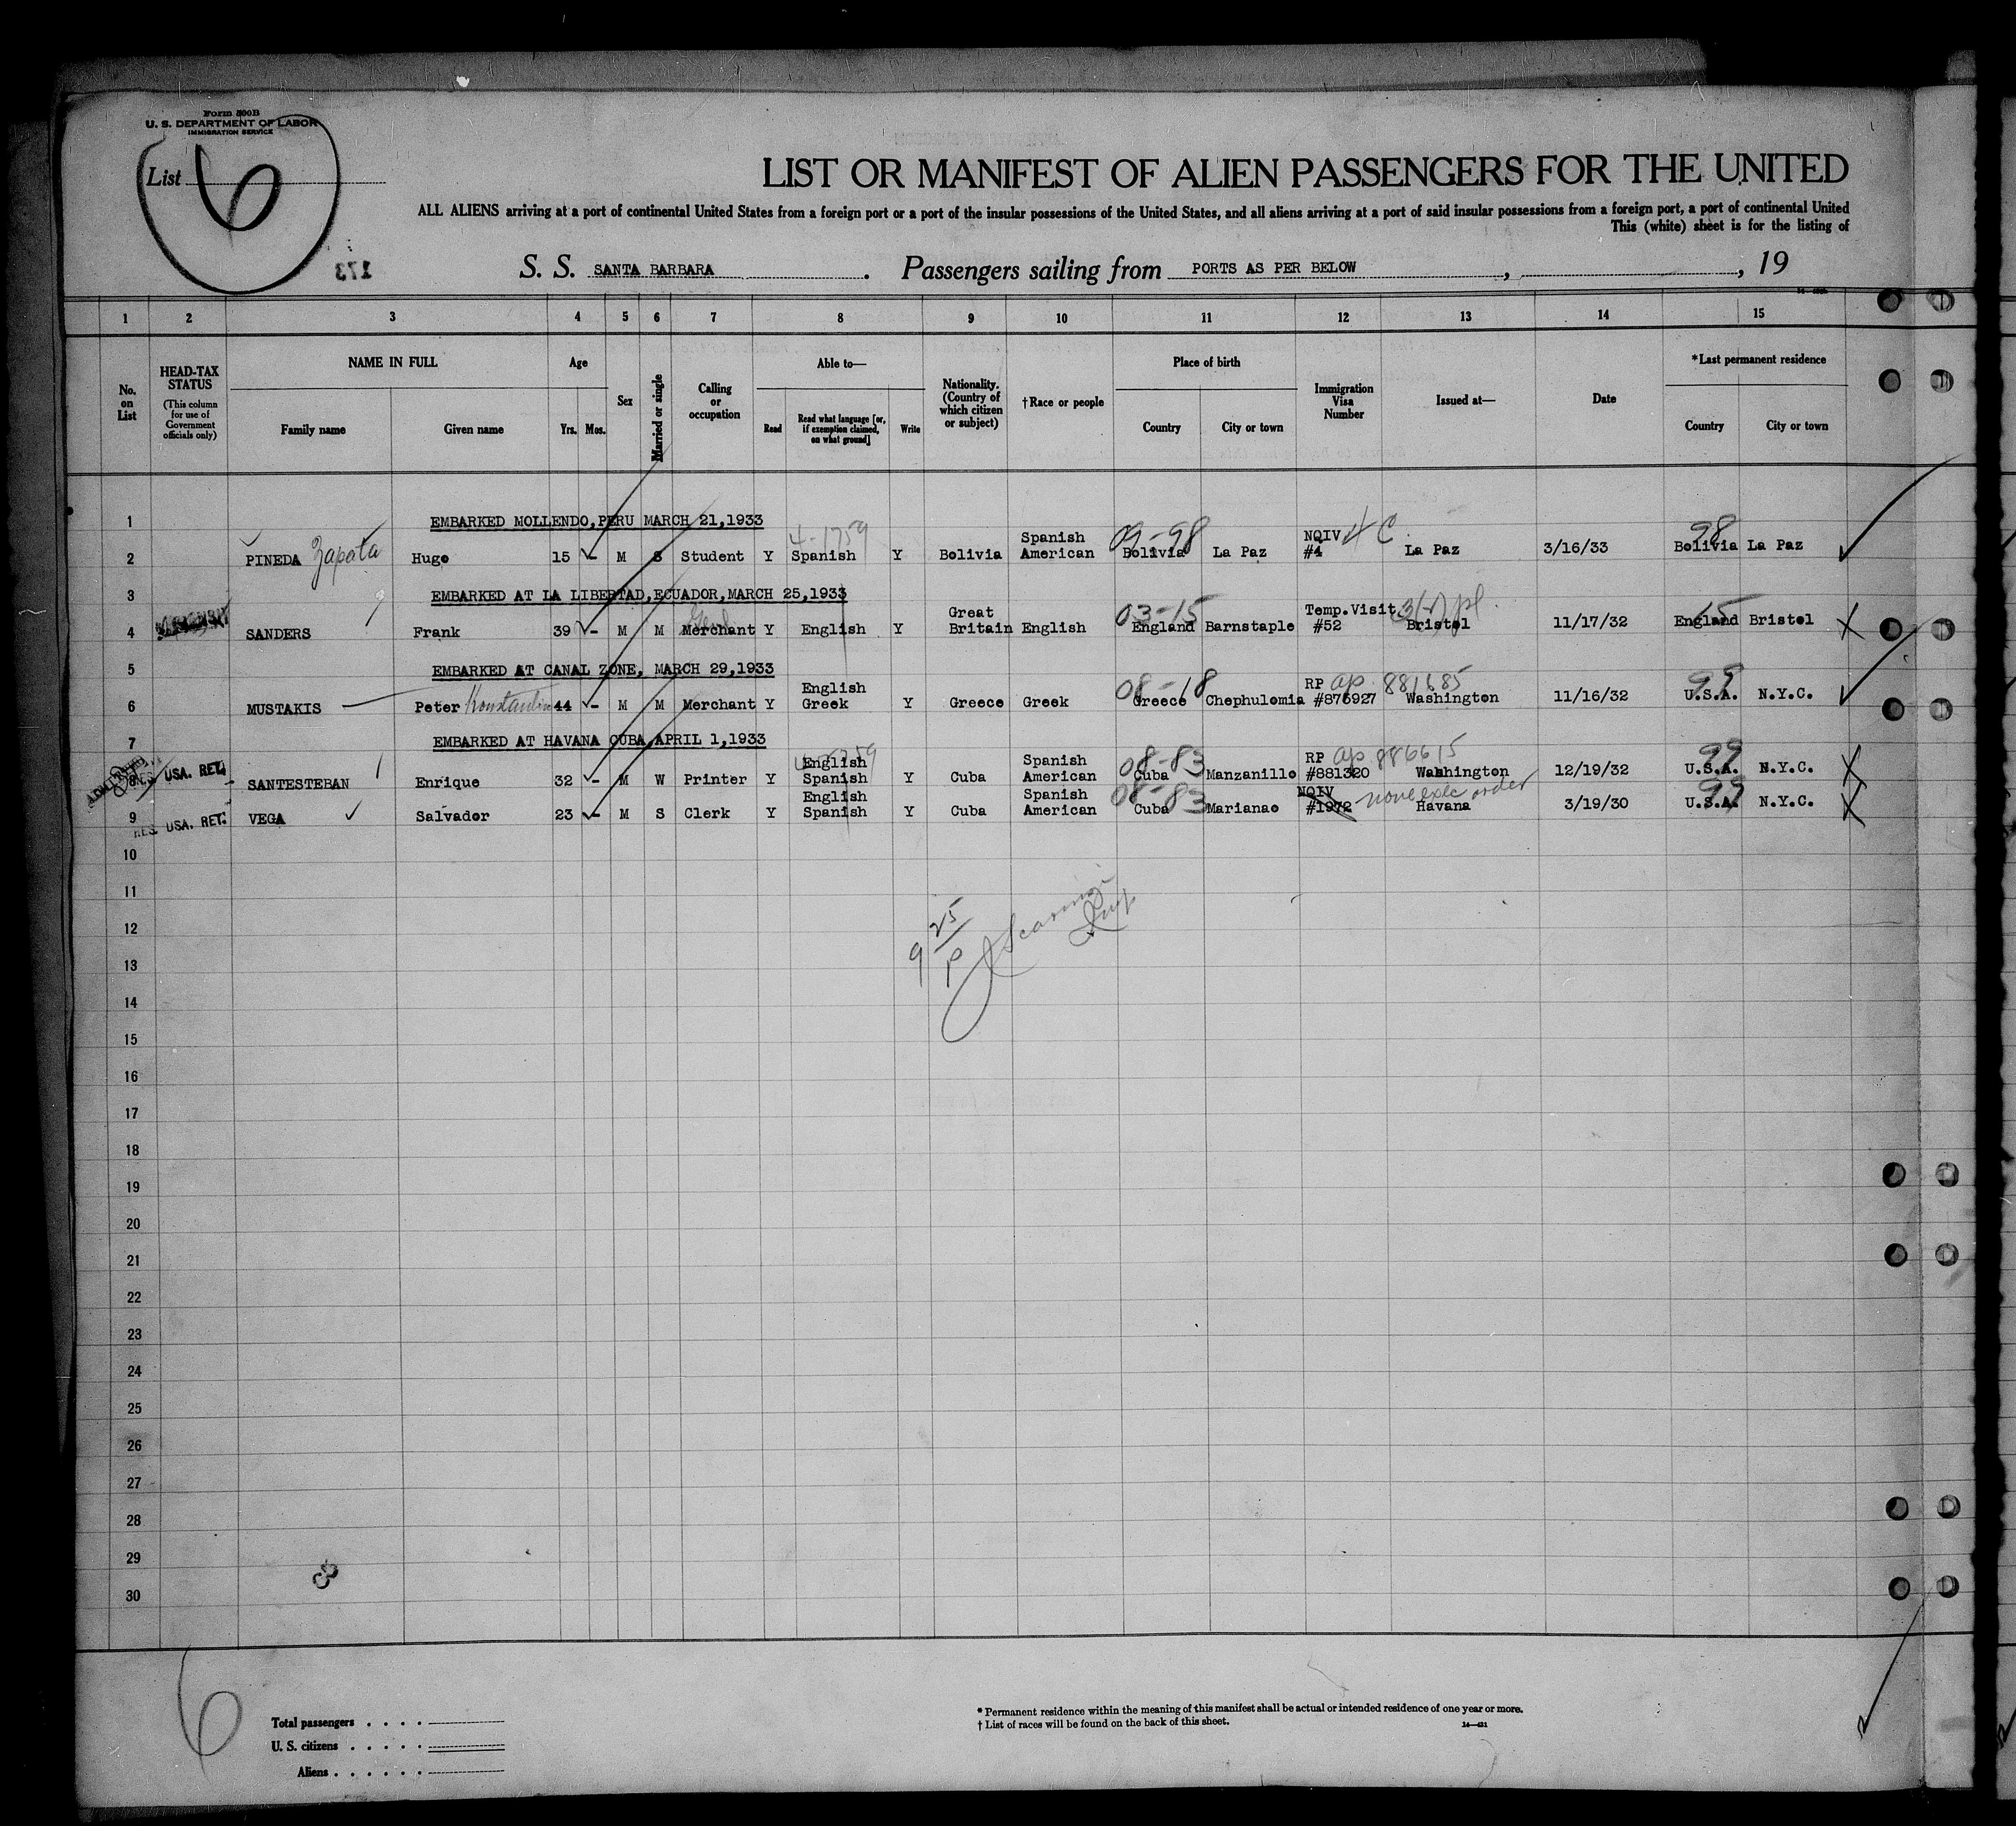 Form 500B
U. S. DEPARTMENT OF LABOR
IMMIGRATION SERVICE
List 6
LIST OR MANIFEST OF ALIEN PASSENGERS FOR THE UNITED
ALL ALIENS arriving at a port of continental United States from a foreign port or a port of the insular possessions of the United States, and all aliens arriving at a port of said insular possessions from a foreign port, a port of continental United
This (white) sheet is for the listing of
173
S. S. SANTA BARBARA . Passengers sailing from PORTS AS PER BELOW , , 19
1 2 3 4 5 6 7 8 9 10 11 12 13 14 15
No. on List
HEAD-TAX STATUS (This column for use of Government officials only)
NAME IN FULL Family name Given name
Age Yrs. Mos.
Sex
Married or single
Calling or occupation
Able to— Read Read what language [or, if exemption claimed, on what ground] Write
Nationality. (Country of which citizen or subject)
†Race or people
Place of birth Country City or town
Immigration Visa Number
Issued at—
Date
*Last permanent residence Country City or town
1 EMBARKED MOLLENDO,PERU MARCH 21,1933
4-1759 Spanish 09-98 NQIV 4 C 98
2 PINEDA Zapata Hugo 15 - M S Student Y Spanish Y Bolivia American Bolivia La Paz #4 La Paz 3/16/33 Bolivia La Paz
3 EMBARKED AT LA LIBERTAD,ECUADOR,MARCH 25,1933
Great 03-15 Temp.Visit 15
4 SANDERS Frank 39 - M M Merchant Y English Y Britain English England Barnstaple #52 Bristol 11/17/32 England Bristol
5 EMBARKED AT CANAL ZONE, MARCH 29,1933
English 08-18 RP ap. 881685 99
6 MUSTAKIS Peter Konstantin 44 - M M Merchant Y Greek Y Greece Greek Greece Chephulomia #876927 Washington 11/16/32 U.S.A. N.Y.C.
7 EMBARKED AT HAVANA CUBA,APRIL 1,1933
English Spanish 08-83 RP ap 886615 99
8 USA. RET. SANTESTEBAN Enrique 32 - M W Printer Y Spanish Y Cuba American Cuba Manzanillo #881320 Washington 12/19/32 U.S.A. N.Y.C.
English Spanish 08-83 NQIV none exec order 99
9 RES. USA. RET. VEGA Salvador 23 - M S Clerk Y Spanish Y Cuba American Cuba Marianao #1972 Havana 3/19/30 U.S.A. N.Y.C.
10
11
12
9 25/P
13
14
15
16
17
18
19
20
21
22
23
24
25
26
27
28
29
30
6
Total passengers . . . .
U. S. citizens . . . . .
Aliens . . . . . .
* Permanent residence within the meaning of this manifest shall be actual or intended residence of one year or more.
† List of races will be found on the back of this sheet.
14—421